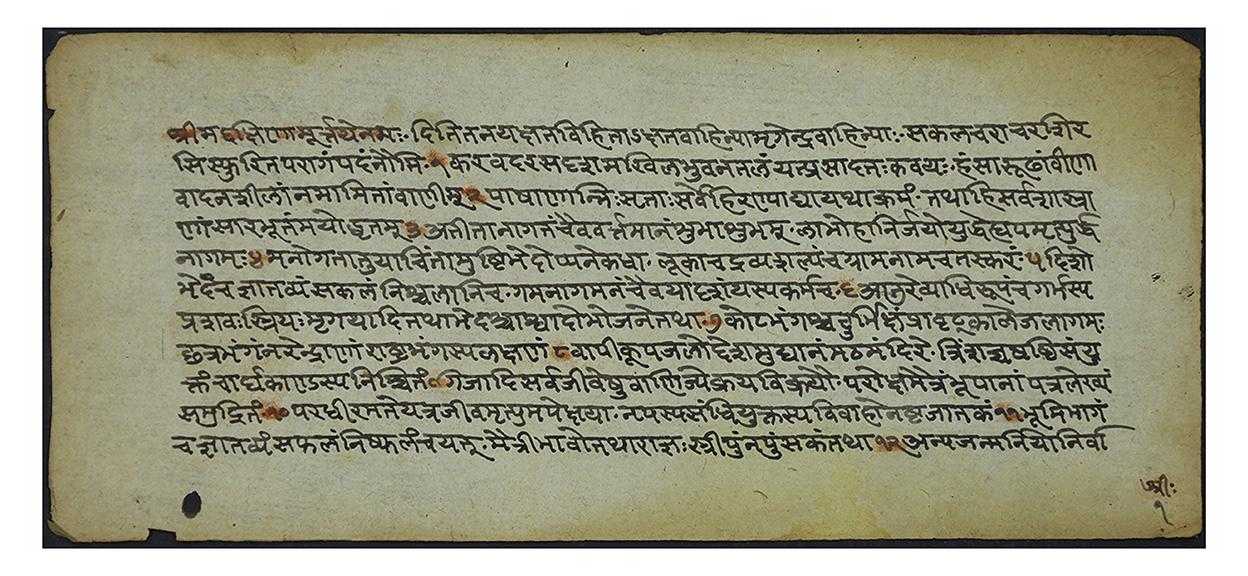 श्रीमद्दक्षिणामूर्त्तयेनमः॰ दितितनयक्षतविहिताऽक्षतवाहिन्यामृगेन्द्रवाहिन्याः॰ सकलचराचरशिर
सिस्फुरितपरागंपदंनौमि॰ १ करवदरसदृशमखिलभुवनतलंयत्प्रसादतःकवयः॰ हंसारूढांवीणा
वादनशीलांनमामितांवाणीम् २ पाषाणान्मिःसृताःसर्वेहिराण्याद्यायथाक्रमं॰ तथाहिसर्वशास्त्रा
णांसारभूतंमयोद्धृतम् ३ अतीतानागतंचैववर्त्तमानंशुभाशुभम्॰ लाभोहानिर्जयोयुद्धे
नागमः ४ मनोगतातुयाचिंतामुष्टिभेदोप्यनेकधा॰ लूकाचद्रव्यशल्यंचग्रामनामचतस्करं॰ ५ दिशो
भेदंचज्ञातव्यंसकलंनिश्चलानिच॰ गमनागमनंचैवयादृशंयस्यकर्मच॰ ६ आतुरेव्याधिरूपंचगर्भस्य
प्रशवःस्त्रियः॰ मृगयादितथाभेदश्चाश्वादोभोजनेतथा॰ ७ कोटभंगश्चदुर्भिक्षंप्रावृट्कालेजलागमः
छत्रभंगंनरेन्द्राणांराष्ट्रभंगस्यलक्षाणं ८ वापीकूपजलोद्देशमुद्यानंमठमंदिरे॰
क्तंचार्घकाण्डस्यनिश्चितं ९ गजादिसर्वजीवेषुवाणिज्येक्रयविक्रयौ॰ परोक्षमैत्रंभूपानांपत्रलेख्यं
समुद्रितं १० नपस्यसंधियुक्तस्यविवाहोनष्टजातकं ११ भूमिभागं
चज्ञातव्यंसफलंनिष्फलंचयत्॰ मैत्रीभावोतथाराज्ञःस्त्रीपुंनपुंसकंतथा १२ अन्यजन्मनियोनिर्वा
श्रीः
१